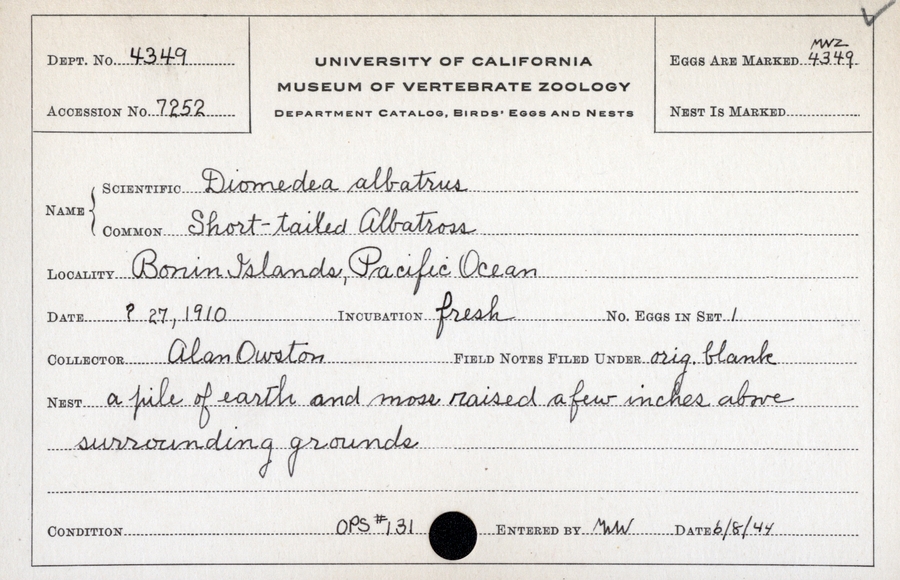 DEPT. No. 4349
ACCESSION No. 7252
UNIVERSITY OF CALIFORNIA
MUSEUM OF VERTEBRATE ZOOLOGY
DEPARTMENT CATALOG, BIRDS' EGGS AND NESTS
MVZ
EGGS ARE MARKED 4349
NEST IS MARKED
NAME
SCIENTIFIC Diomedea albatrus
COMMON Short-tailed Albatross
LOCALITY Bonin Islands, Pacific Ocean
DATE ? 27, 1910 INCUBATION fresh No. EGGS IN SET 1
COLLECTOR Alan Owston FIELD NOTES FILED UNDER orig. blank
NEST a pile of earth and moss raised a few inches above
surrounding grounds
CONDITION OPS #131 ENTERED BY MW DATE 6/8/44